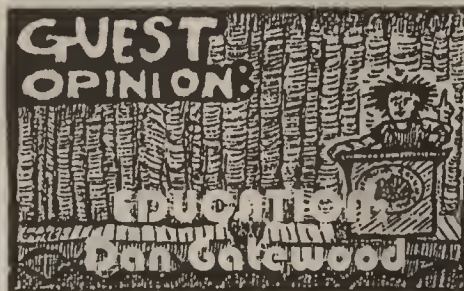 GUEST
OPINION:
EDUCATION:
Dan Gatewood